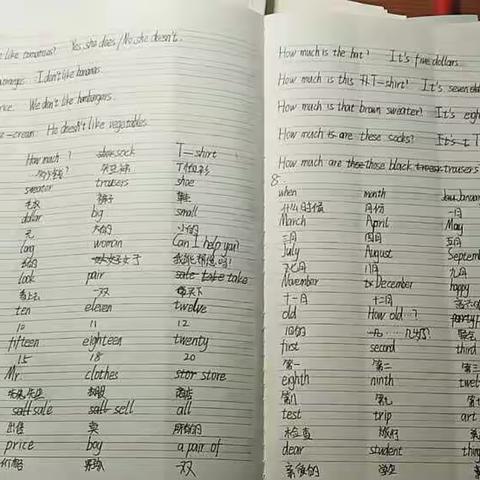 like tomatoes? Yes, she does / No, she doesn't.
oranges. I don't like bananas.
rice. We don't like hamburgers.
ice-cream. He doesn't like vegetables.
How much? sock T-shirt
多少钱? T恤衫
sweater trousers shoe
毛衣 裤子 鞋
dollar big small
元 大的 小的
long woman Can I help you?
长的 女子
look pair take
看上去 一双 买下
ten eleven twelve
10 11 12
fifteen eighteen twenty
15 18 20
Mr. clothes store
衣服 商店
sale sell all
出售 卖 所有的
price boy a pair of
价格 男孩 一双
How much is the hat? It's five dollars.
How much is this T-shirt? It's seven
How much is that brown sweater? It's
How much are these socks?
How much are those black trousers
8.
when month
什么时候 月份 一月
March April May
三月 四月 五月
July August
七月 八月 九月
November December happy
十一月 十二月
old How old..?
旧的
first second third
第一 第二 第三
eighth ninth
第八 第九
test trip art
检查 旅行
dear student
亲爱的 学生